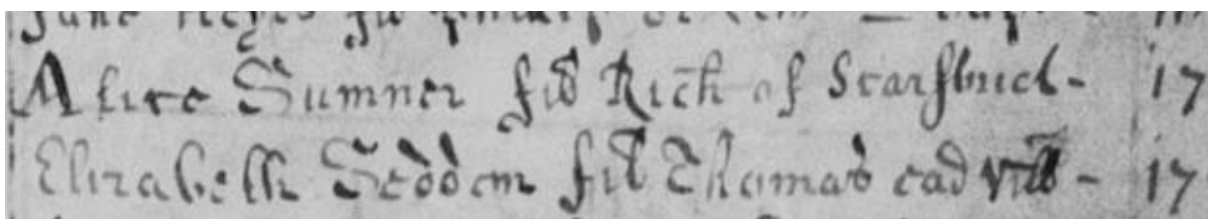 Alice Sumner fil Rich of Scarsbrick - 17
Elizabeth Seddom fil Thomas ead vill - 17